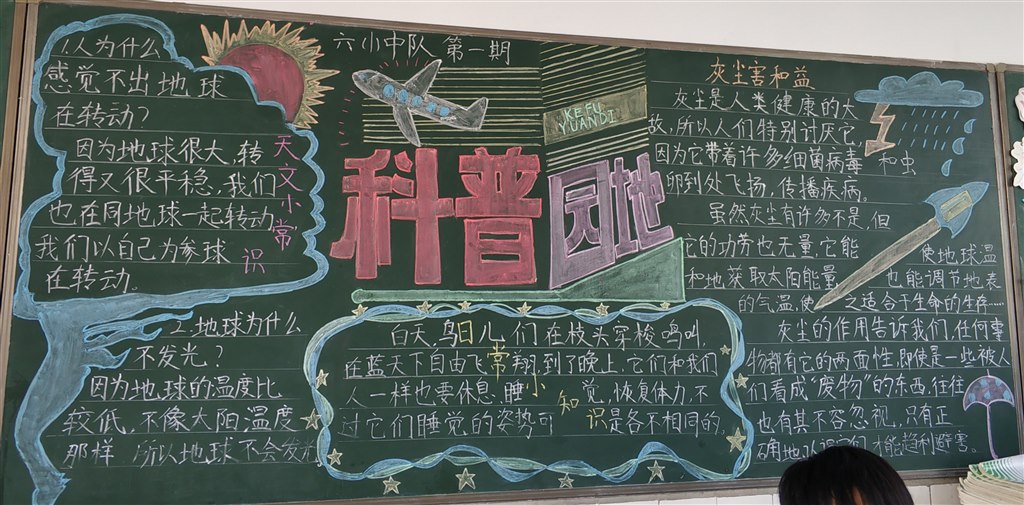 六小中队 第一期
科普园地
KE FU
YUANDI
天文小常识
1.人为什么
感觉不出地球
在转动?
因为地球很大,转
得又很平稳,我们
也在同地球一起转动
我们以自己为参球
在转动.
2.地球为什么
不发光?
因为地球的温度比
较低,不像太阳温度
那样 所以地球不会发光
日常小知识
白天,鸟儿,们在枝头穿梭鸣叫,
在蓝天下自由飞翔,到了晚上,它们和我们
人一样也要休息,睡觉,恢复体力,不
过它们睡觉的姿势可是各不相同的,
灰尘害和益
灰尘是人类健康的大
敌,所以人们特别讨厌它
因为它带着许多细菌病毒 和虫
卵到处飞扬,传播疾病。
虽然灰尘有许多不是,但
它的功劳也无量,它能 使地球温
和地获取太阳能量 也能调节地表
的气温,使 之适合于生命的生存……
灰尘的作用告诉我们,任何事
物都有它的两面性,即使是一些被人
们看成"废物"的东西,往往
也有其不容忽视,只有正
确地 才能趋利避害。